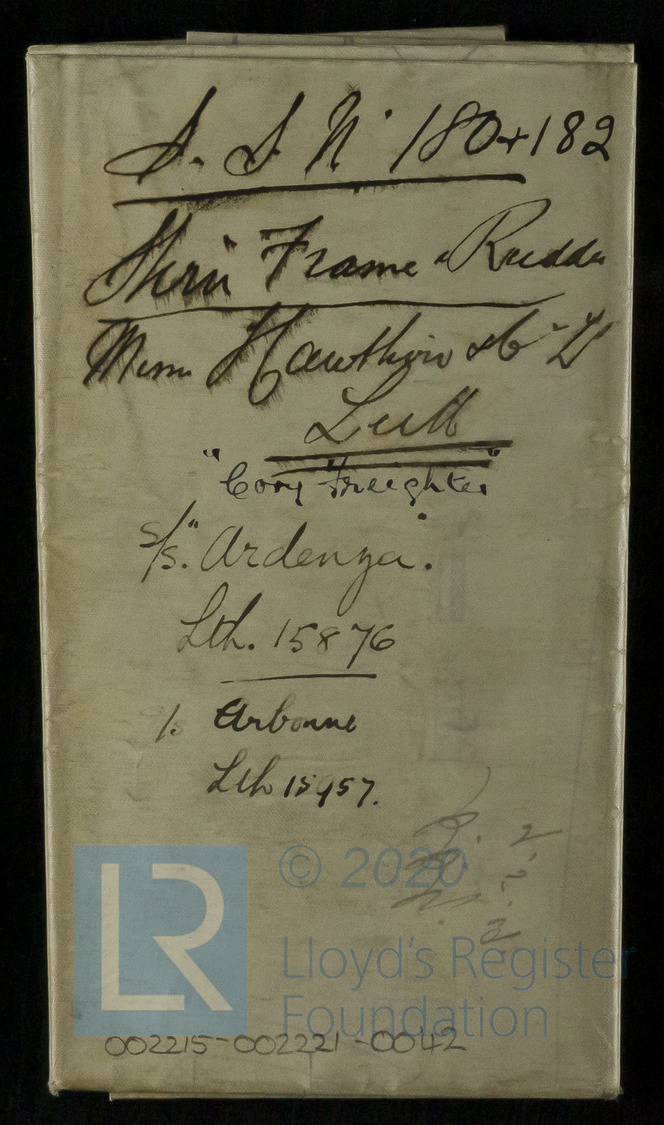 S. S. No 180 & 182
Stern Frame & Rudder
Messrs Hawthorn & Co Ld
Leith
"Cory Freighter"
S/S. "Ardenza".
Lth. 15876
Arbonne
Lth 15957.
2.2.2
LR
© 2020
Lloyd's Register
Foundation
002215-002221-0042